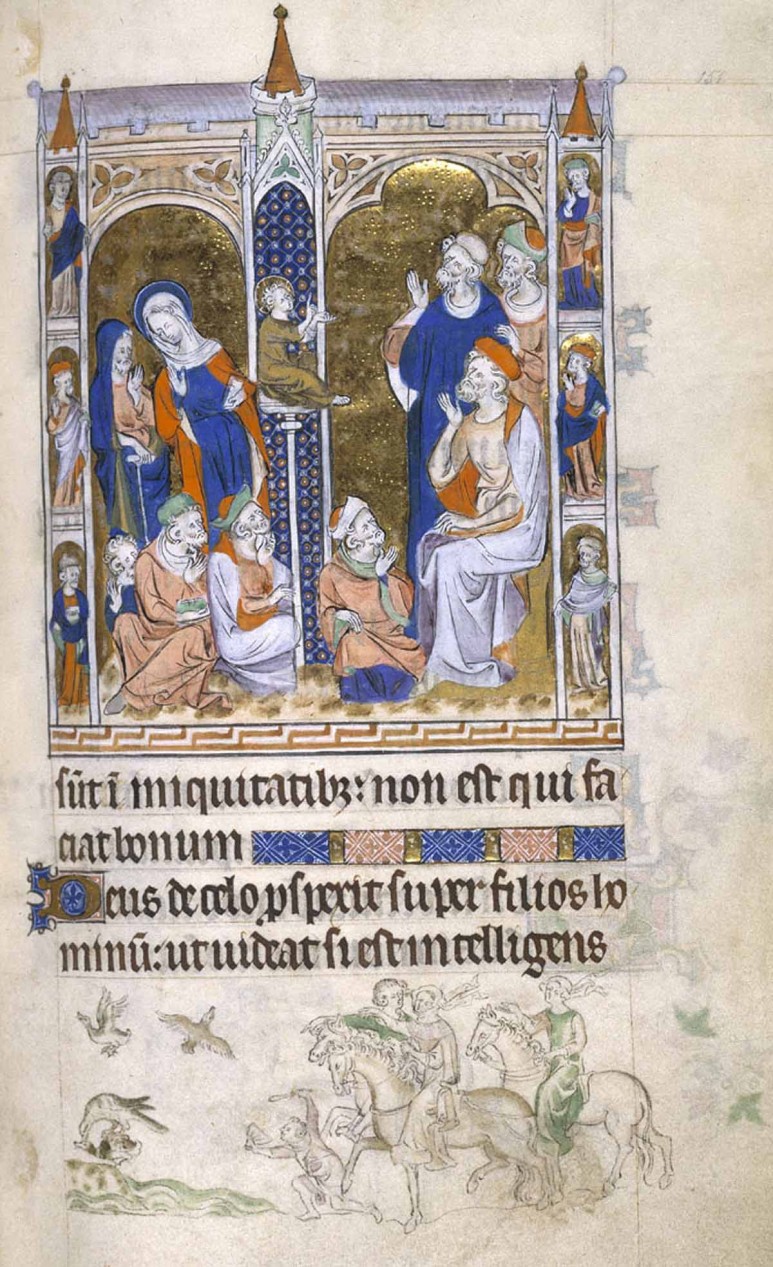 151
sūt ī iniquitatibꝫ: non est qui fa
ciat bonum
Deus de celo ꝓspexit super filios ho
minū: ut uideat si est intelligens